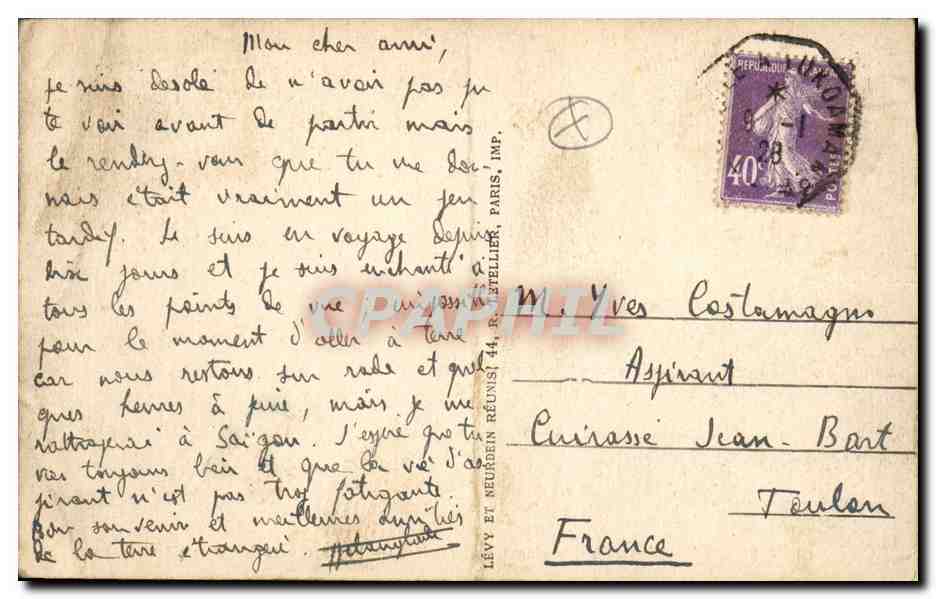 Mon cher ami,
je suis désolé de n'avoir pas pu
te voir avant de partir mais
le rendez-vous que tu me don-
nais était vraiment un peu
tardif. Je suis en voyage depuis
dix jours et je suis enchanté à
tous les points de vue. impossible
pour le moment d'aller à terre
car nous restons sur rade et quel
ques heures à peine, mais je me
rattraperai à Saïgon. J'espère que tu
vas toujours bien et que la vie d'as
pirant n'est pas trop fatigante.
Bon souvenir et meilleures amitiés
de la terre étrangère.
LÉVY ET NEURDEIN RÉUNIS, 44, R. LETELLIER, PARIS, IMP.
REPUBLIQUE
40c
POSTES
9 -1
28
M. Yves Costamagno
Aspirant
Cuirassé Jean-Bart
Toulon
France
CPAPHIL